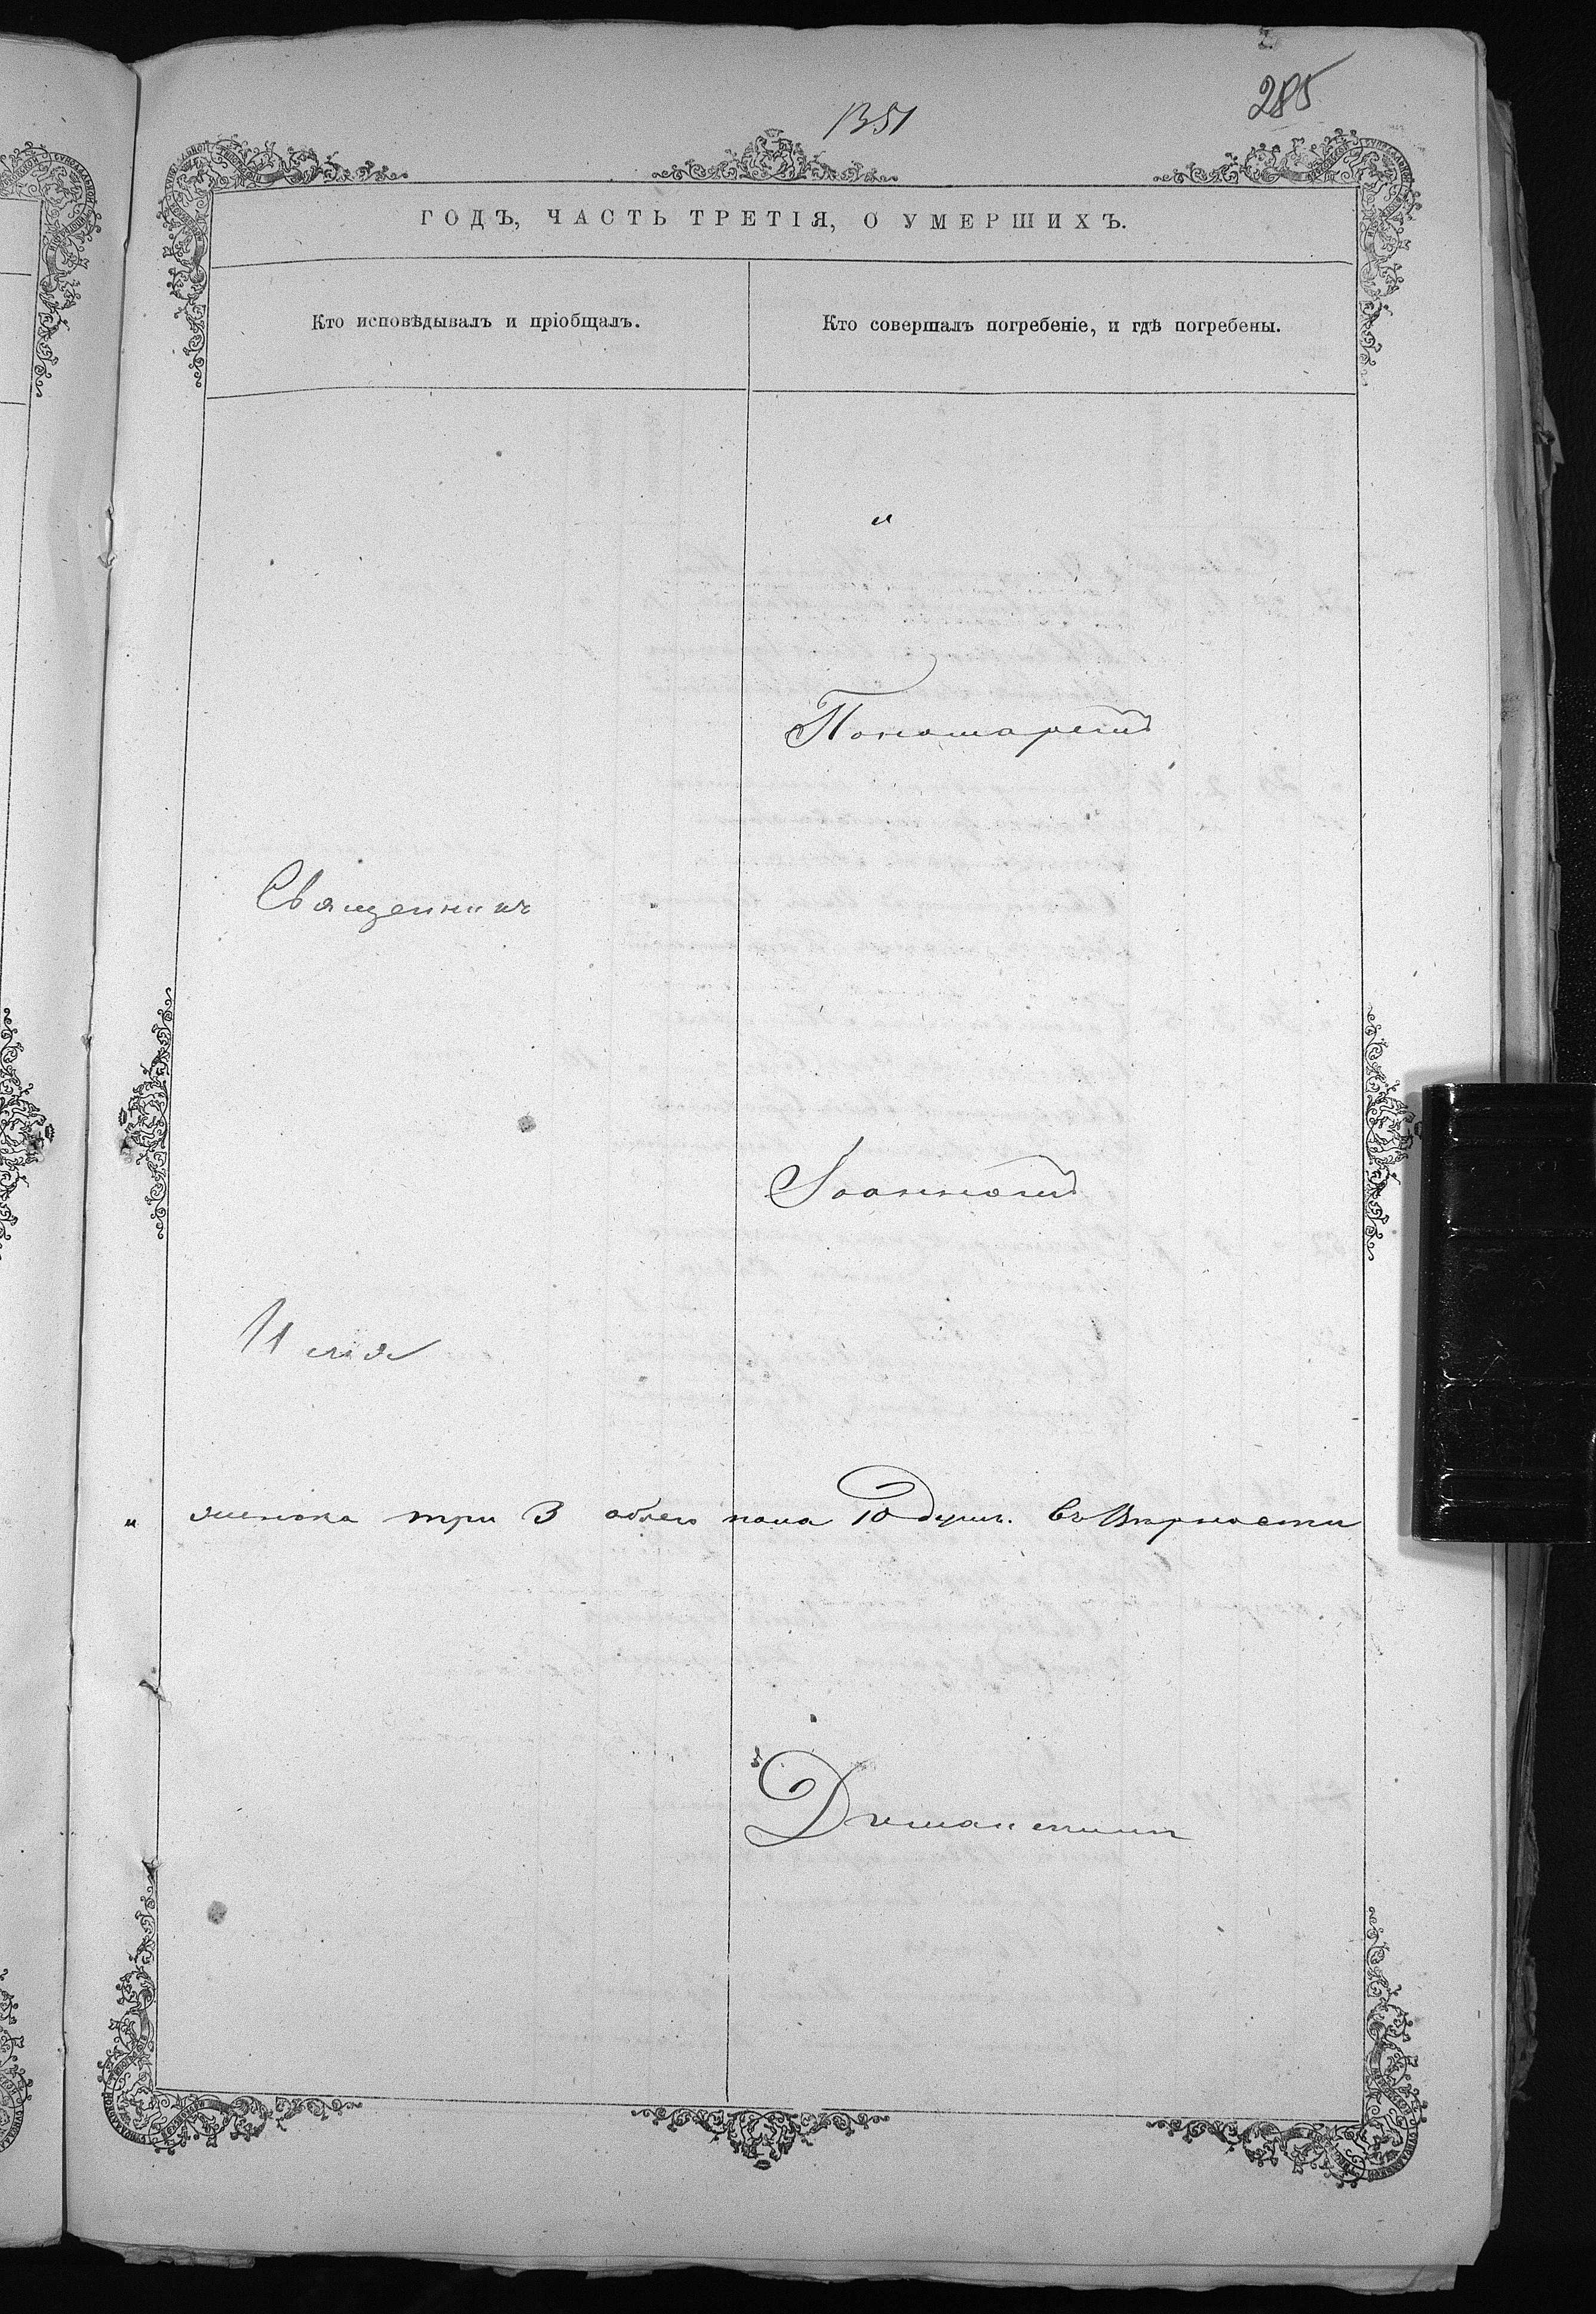 285
1351
ГОДЪ, ЧАСТЬ ТРЕТІЯ, О УМЕРШИХЪ.
Кто исповѣдывалъ и пріобщалъ.
Кто совершалъ погребеніе, и гдѣ погребены.
"
Пономаремъ
Священникъ
Іоанномъ
Илія
" женска три 3 обоего пола 10 душъ. Въ Вѣрности